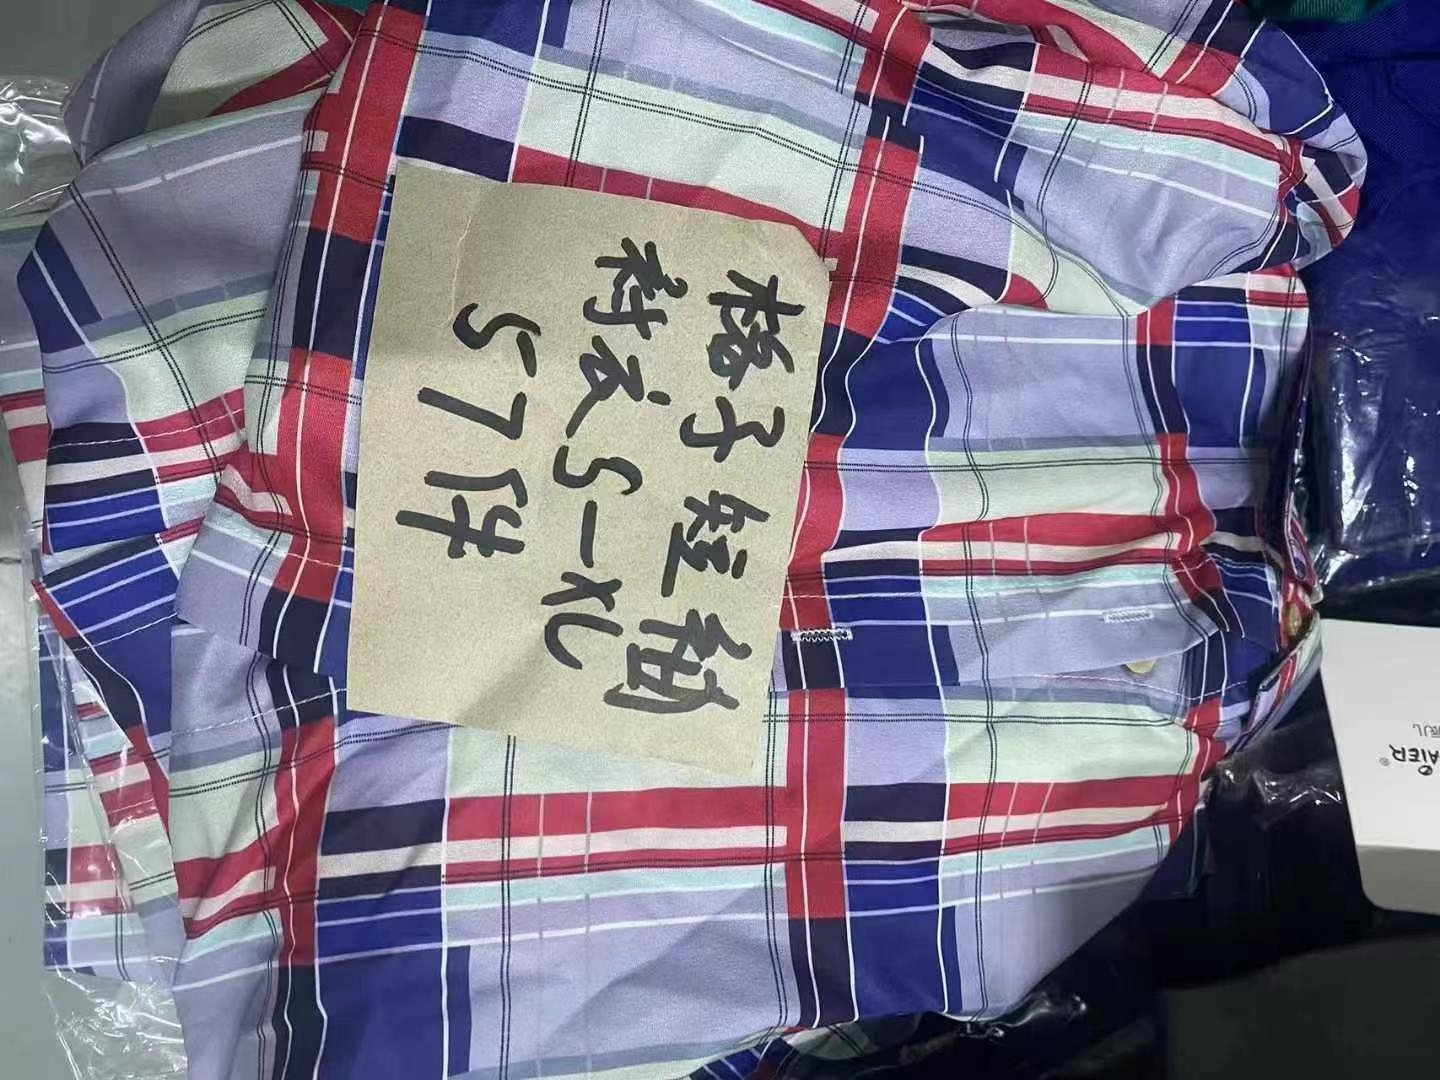 格子短袖
衬衣S-XL
57件
AIER®